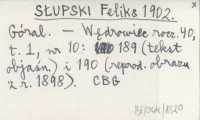 SŁUPSKI Feliks 1902.
Góral. — Wędrowiec rocz. 40,
t. 1, nr 10: 189 (tekst
objaśn.) i 190 (reprod. obrazu
z r. 1898). CBG